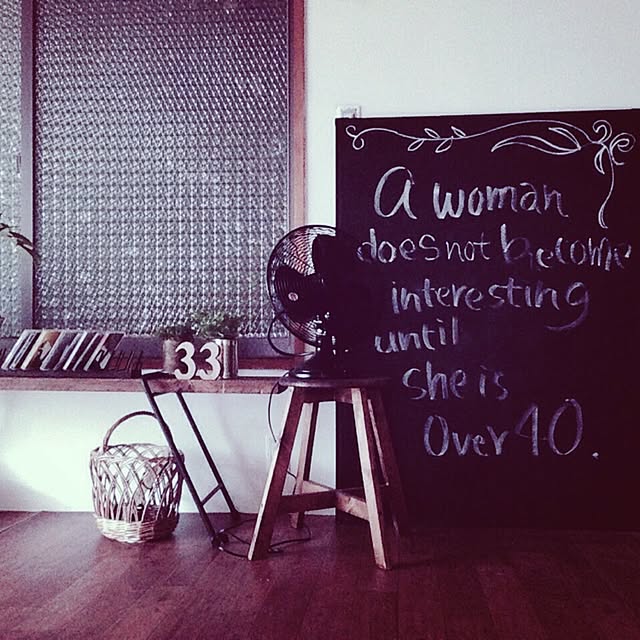 A woman
does not become
interesting
until
she is
Over 40.
33